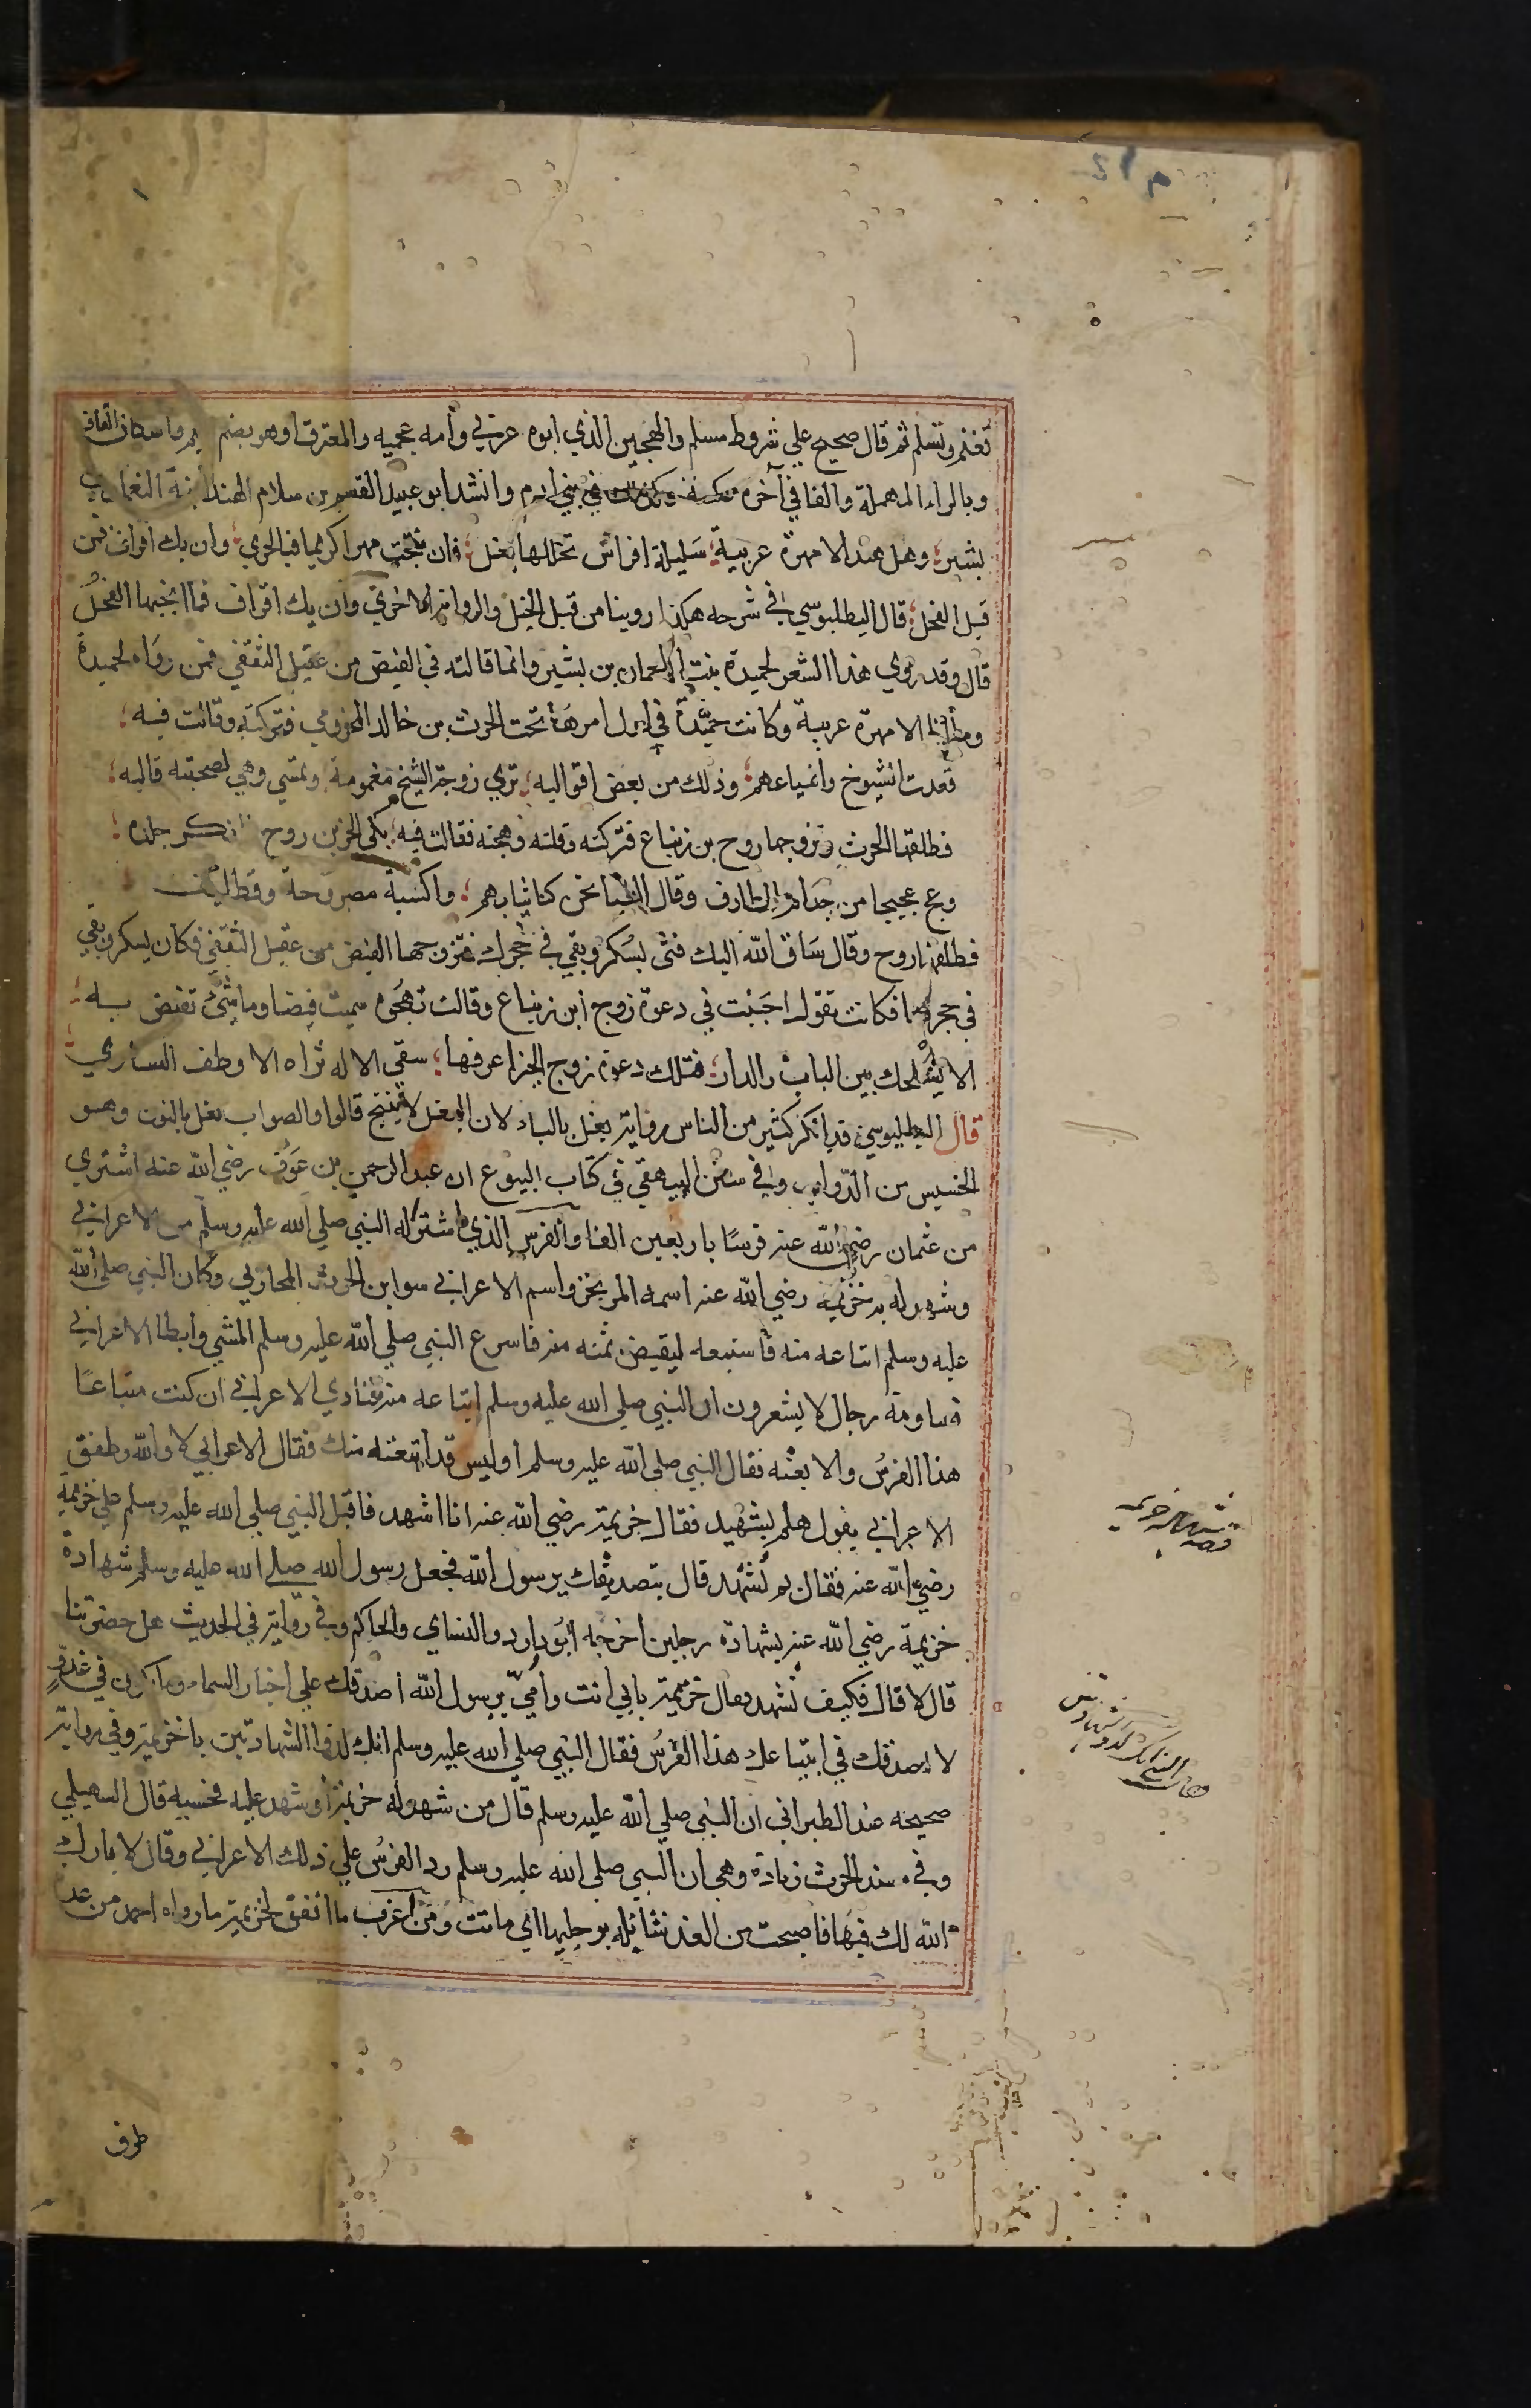 تغنم وتسلم ثم قال صحيح علي شروط مسلم والهجين الذي ابوه عربي وأمه عجميه والمعترف وهو بضم واسكان القاف
وبالراء المهملة والفا في آخره وكذلك في بني ادم وانشد ابو عبيد القسم بن سلام الهند ابنة النعمان بن
بشير؛ وهل هند الا مهرة عربية؛ سليلة افراس تخللها بغل؛ فان نتجت مهرا كريما فبالحري؛ وان يك اقراف فمن
قبل الفحل؛ قال البطلبوسي في شرحه هكذا روينا من قبل الخيل والرواية الاخري وان يك اقراف فما انجبها الفحل
قال وقد روي هذا الشعر لحميدة بنت النعمان بن بشير وانما قالته في الفيض من عقيل الثقفي فمن رواه لحميدة
وما انا الا مهرة عربية وكانت حميدة في اول امرها تحت الحرث بن خالد المخزومي فتركته وقالت فيه؛
فقدت الشيوخ واشياعهم؛ وذلك من بعض اقواليه؛ تري زوجة الشيخ مغمومة وتمشي وهي لصحبته قاليه؛
فطلقها الحرث وتزوجها روح بن زنباع فتركته وقلته وهجته فقالت فيه؛ بكي الخز من روح وانكر جلده؛
وعج عجيجا من جذام المطارف وقال العبا نحن كنا ثيابهم؛ واكسية مصروحة وقطائف
فطلقها روح وقال ساق الله اليك فتى يسكر ويقي في حجرك فتزوجها الفيض من عقيل الثقفي فكان يسكر ويقي
في حجرها فكانت تقول اجبنت في دعوة زوج ابن زنباع وقالت تهجوه سميت فيضا وما شئ تفيض به؛
الا بسلحك بين الباب والدار؛ فتلك دعوة زوج الخز اعرفها؛ سقي الاله ثراه الا وطف الساري
قال البطلبوسي قد انكر كثير من الناس رواية بغل بالباء لان البغل لا ينتج قالوا والصواب نغل بالنون وهو
الخسيس من الدواب وفي سنن البيهقي في كتاب البيوع ان عبد الرحمن بن عوف رضي الله عنه اشتري
من عثمان رضي الله عنه فرسا باربعين الفا والفرس الذي اشتراه النبي صلي الله عليه وسلم من الاعرابي
وشهد له به خزيمة رضي الله عنه اسمه المرتجز واسم الاعرابي سوا بن الحرث المحاربي وكان النبي صلي الله
عليه وسلم ابتاعه منه فاستتبعه ليقبض ثمنه منه فاسرع النبي صلي الله عليه وسلم المشي وابطا الاعرابي
فساومه رجال لا يشعرون ان النبي صلي الله عليه وسلم ابتاعه منه فنادي الاعرابي ان كنت مبتاعا
هذا الفرس والا بعته فقال النبي صلي الله عليه وسلم أوليس قد ابتعته منك فقال الاعرابي لا والله وطفق
الاعرابي يقول هلم بشهيد فقال خزيمة رضي الله عنه انا اشهد فاقبل النبي صلي الله عليه وسلم علي خزيمة
رضي الله عنه فقال بم تشهد قال بتصديقك يرسول الله فجعل رسول الله صلي الله عليه وسلم شهادة
خزيمة رضي الله عنه بشهادة رجلين اخرجه ابو داود والنساي والحاكم وفي رواية في الحديث هل حضرتنا
قال لا قال فكيف تشهد فقال خزيمة بابي انت وأمي يرسول الله اصدقك علي اخبار السماء وما يكون في غد و
لا اصدقك في ابتياعك هذا الفرس فقال النبي صلي الله عليه وسلم انك لذوا الشهادتين يا خزيمة وفي رواية
صحيحه عند الطبراني ان النبي صلي الله عليه وسلم قال من شهد له خزيمة أو شهد عليه فحسبه قال السهيلي
وفي مسند الحرث زيادة وهي ان النبي صلي الله عليه وسلم رد الفرس علي ذلك الاعرابي وقال لا بارك
الله لك فيها فاصبحت من الغد شائلة برجليها اي ماتت ومن اغرب ما اتفق لخزيمة ما رواه احمد من عد
قصه شهاده خزيمه
طرف